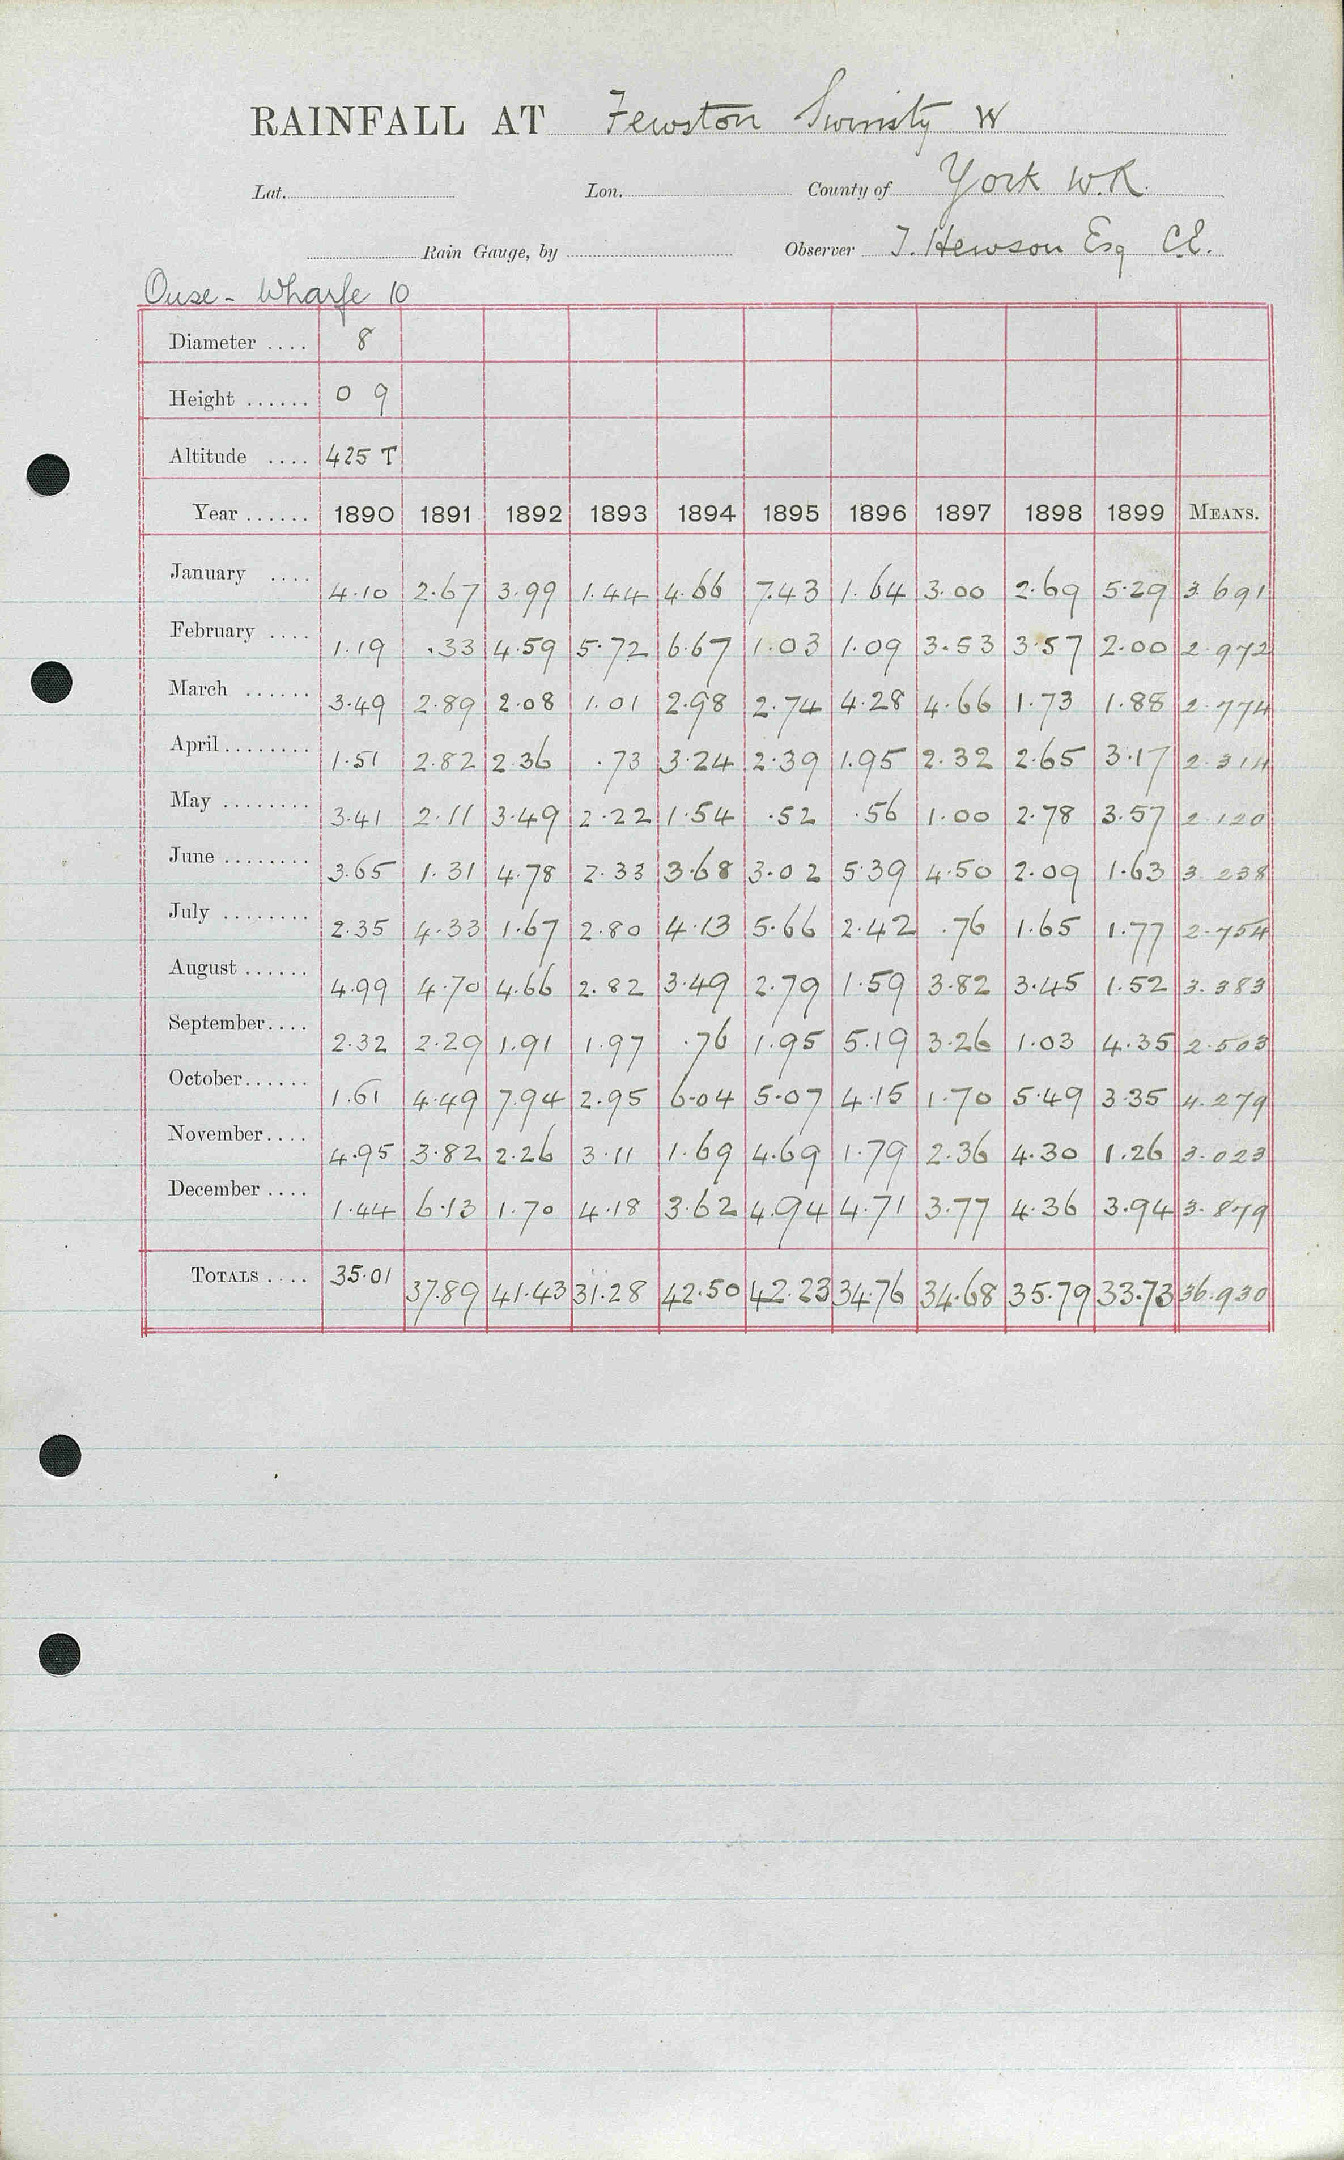 RAINFALL AT Fewston Swinsty W
Lat. Lon. County of York W.R.
Rain Gauge, by Observer T. Hewson Esq C.E.
Ouse - Wharfe 10
Diameter .... 8
Height ...... 0 9
Altitude .... 425 T
Year ...... 1890 1891 1892 1893 1894 1895 1896 1897 1898 1899 MEANS.
January .... 4.10 2.67 3.99 1.44 4.66 7.43 1.64 3.00 2.69 5.29 3.691
February .... 1.19 .33 4.59 5.72 6.67 1.03 1.09 3.53 3.57 2.00 2.972
March ...... 3.49 2.89 2.08 1.01 2.98 2.74 4.28 4.66 1.73 1.88 2.774
April ........ 1.51 2.82 2.36 .73 3.24 2.39 1.95 2.32 2.65 3.17 2.314
May ........ 3.41 2.11 3.49 2.22 1.54 .52 .56 1.00 2.78 3.57 2.120
June ........ 3.65 1.31 4.78 2.33 3.68 3.02 5.39 4.50 2.09 1.63 3.238
July ........ 2.35 4.33 1.67 2.80 4.13 5.66 2.42 .76 1.65 1.77 2.754
August ...... 4.99 4.70 4.66 2.82 3.49 2.79 1.59 3.82 3.45 1.52 3.383
September .... 2.32 2.29 1.91 1.97 .76 1.95 5.19 3.26 1.03 4.35 2.503
October ...... 1.61 4.49 7.94 2.95 6.04 5.07 4.15 1.70 5.49 3.35 4.279
November .... 4.95 3.82 2.26 3.11 1.69 4.69 1.79 2.36 4.30 1.26 3.023
December .... 1.44 6.13 1.70 4.18 3.62 4.94 4.71 3.77 4.36 3.94 3.879
TOTALS .... 35.01 37.89 41.43 31.28 42.50 42.23 34.76 34.68 35.79 33.73 36.930